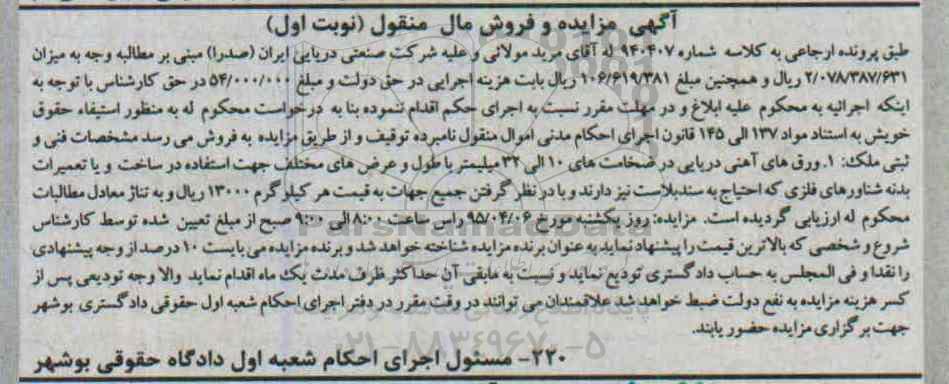 آگهی مزایده و فروش مال منقول (نوبت اول)
طبق پرونده ارجاعی به کلاسه شماره ۹۴۰۴۰۷ له آقای مرید مولائی و علیه شرکت صنعتی دریایی ایران (صدرا) مبنی بر مطالبه وجه به میزان
۲/۰۷۸/۳۸۷/۶۳۱ ریال و همچنین مبلغ ۱۰۶/۶۱۹/۳۸۱ ریال بابت هزینه اجرایی در حق دولت و مبلغ ۵۴/۰۰۰/۰۰۰ در حق کارشناس با توجه به
اینکه اجرائیه به محکوم علیه ابلاغ و در مهلت مقرر نسبت به اجرای حکم اقدام ننموده بنا به درخواست محکوم له به منظور استیفاء حقوق
خویش به استناد مواد ۱۳۷ الی ۱۴۵ قانون اجرای احکام مدنی اموال منقول نامبرده توقیف و از طریق مزایده به فروش می رسد مشخصات فنی و
ثبتی ملک: ۱. ورق های آهنی دریایی در ضخامت های ۱۰ الی ۳۲ میلیمتر با طول و عرض های مختلف جهت استفاده در ساخت و یا تعمیرات
بدنه شناورهای فلزی که احتیاج به سندبلاست نیز دارند و با در نظر گرفتن جمیع جهات به قیمت هر کیلوگرم ۱۳۰۰۰ ریال و به تناژ معادل مطالبات
محکوم له ارزیابی گردیده است. مزایده: روز یکشنبه مورخ ۹۵/۰۴/۰۶ راس ساعت ۸:۰۰ الی ۹:۰۰ صبح از مبلغ تعیین شده توسط کارشناس
شروع و شخصی که بالاترین قیمت را پیشنهاد نماید به عنوان برنده مزایده شناخته خواهد شد و برنده مزایده می بایست ۱۰ درصد از وجه پیشنهادی
را نقدا و فی المجلس به حساب دادگستری تودیع نماید و نسبت به مابقی آن حداکثر ظرف مدت یک ماه اقدام نماید والا وجه تودیعی پس از
کسر هزینه مزایده به نفع دولت ضبط خواهد شد علاقمندان می توانند در وقت مقرر در دفتر اجرای احکام شعبه اول حقوقی دادگستری بوشهر
جهت برگزاری مزایده حضور یابند.
۲۲۰- مسئول اجرای احکام شعبه اول دادگاه حقوقی بوشهر
ParsNamadData
۰۲۱-۸۸۳۴۹۶۷۰-۵